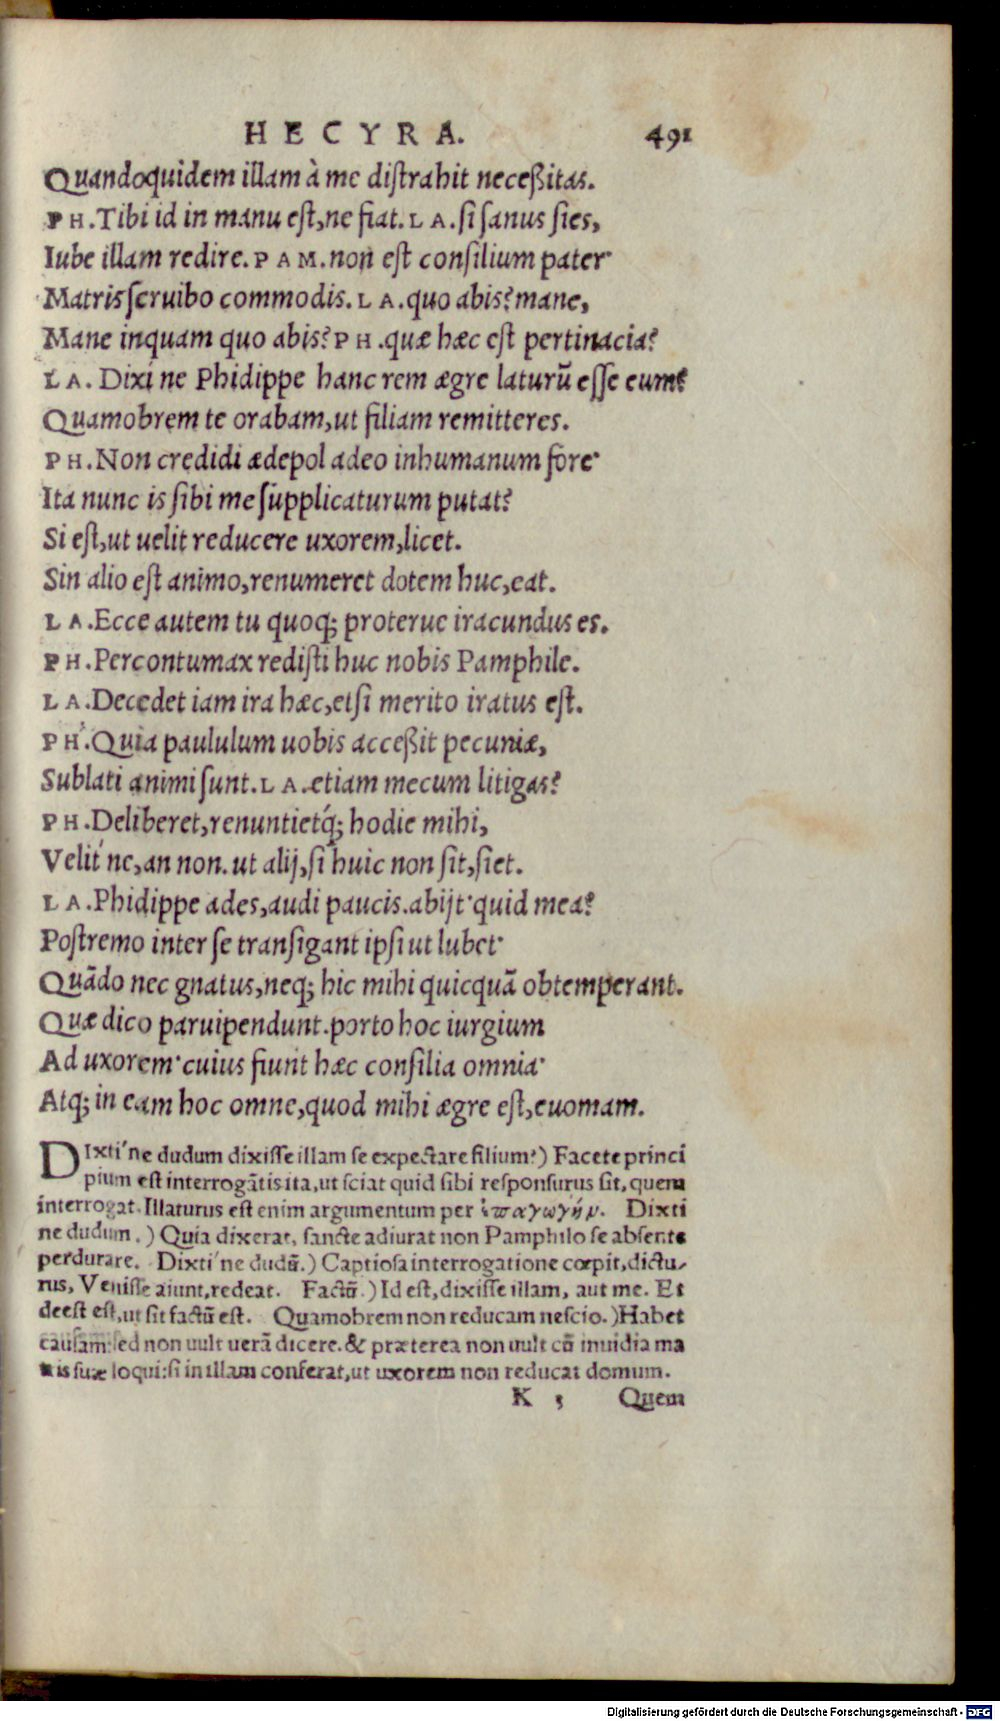 HECYRA. 491
Quandoquidem illam à me distrahit neceßitas.
PH. Tibi id in manu est, ne fiat. LA. si sanus sies,
Iube illam redire. PAM. non est consilium pater·
Matris seruibo commodis. LA. quo abis? mane,
Mane inquam quo abis? PH. quæ hæc est pertinacia?
LA. Dixi ne Phidippe hanc rem ægre laturū esse eum?
Quamobrem te orabam, ut filiam remitteres.
PH. Non credidi ædepol adeo inhumanum fore·
Ita nunc is sibi me supplicaturum putat?
Si est, ut uelit reducere uxorem, licet.
Sin alio est animo, renumeret dotem huc, eat.
LA. Ecce autem tu quoq; proterue iracundus es.
PH. Percontumax redisti huc nobis Pamphile.
LA. Decedet iam ira hæc, etsi merito iratus est.
PH. Quia paululum uobis acceßit pecuniæ,
Sublati animi sunt. LA. etiam mecum litigas?
PH. Deliberet, renuntietq́; hodie mihi,
Velit' ne, an non. ut alij, si huic non sit, siet.
LA. Phidippe ades, audi paucis. abijt· quid mea?
Postremo inter se transigant ipsi ut lubet·
Quādo nec gnatus, neq; hic mihi quicquā obtemperant.
Quæ dico paruipendunt. porto hoc iurgium
Ad uxorem· cuius fiunt hæc consilia omnia·
Atq; in eam hoc omne, quod mihi ægre est, euomam.
DIxti' ne dudum dixisse illam se expectare filium?) Facete princi
pium est interrogātis ita, ut sciat quid sibi responsurus sit, quem
interrogat. Illaturus est enim argumentum per ἐπαγωγήν. Dixti
ne dudum.) Quia dixerat, sancte adiurat non Pamphilo se absente
perdurare. Dixti' ne dudū.) Captiosa interrogatione cœpit, dictu-
rus, Venisse aiunt, redeat. Factū.) Id est, dixisse illam, aut me. Et
deest est, ut sit factū est. Quamobrem non reducam nescio.) Habet
causam: sed non uult uerā dicere. & præterea non uult cū inuidia ma
tris suæ loqui: si in illam conferat, ut uxorem non reducat domum.
K 3 Quem
Digitalisierung gefördert durch die Deutsche Forschungsgemeinschaft - DFG